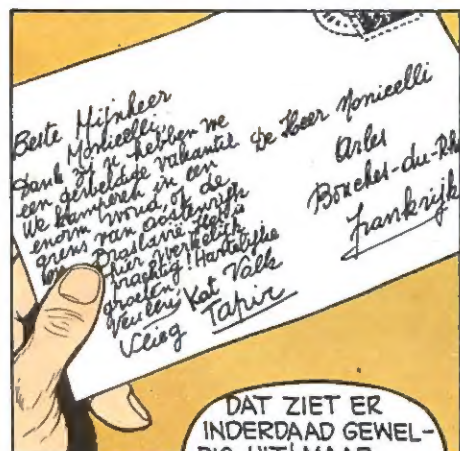 Beste Mijnheer
Monicelli,
Dank zij u hebben we
een geweldige vakantie
We kamperen in een
enorm woud, op de
grens van Oostenrijk
Draslavië. Het is
hier werkelijk
prachtig! Hartelijke
groeten
Kat Valk
Vlieg Tapir
De Heer Monicelli
Arles
Bouches-du-Rh
Frankrijk
DAT ZIET ER
INDERDAAD GEWEL-